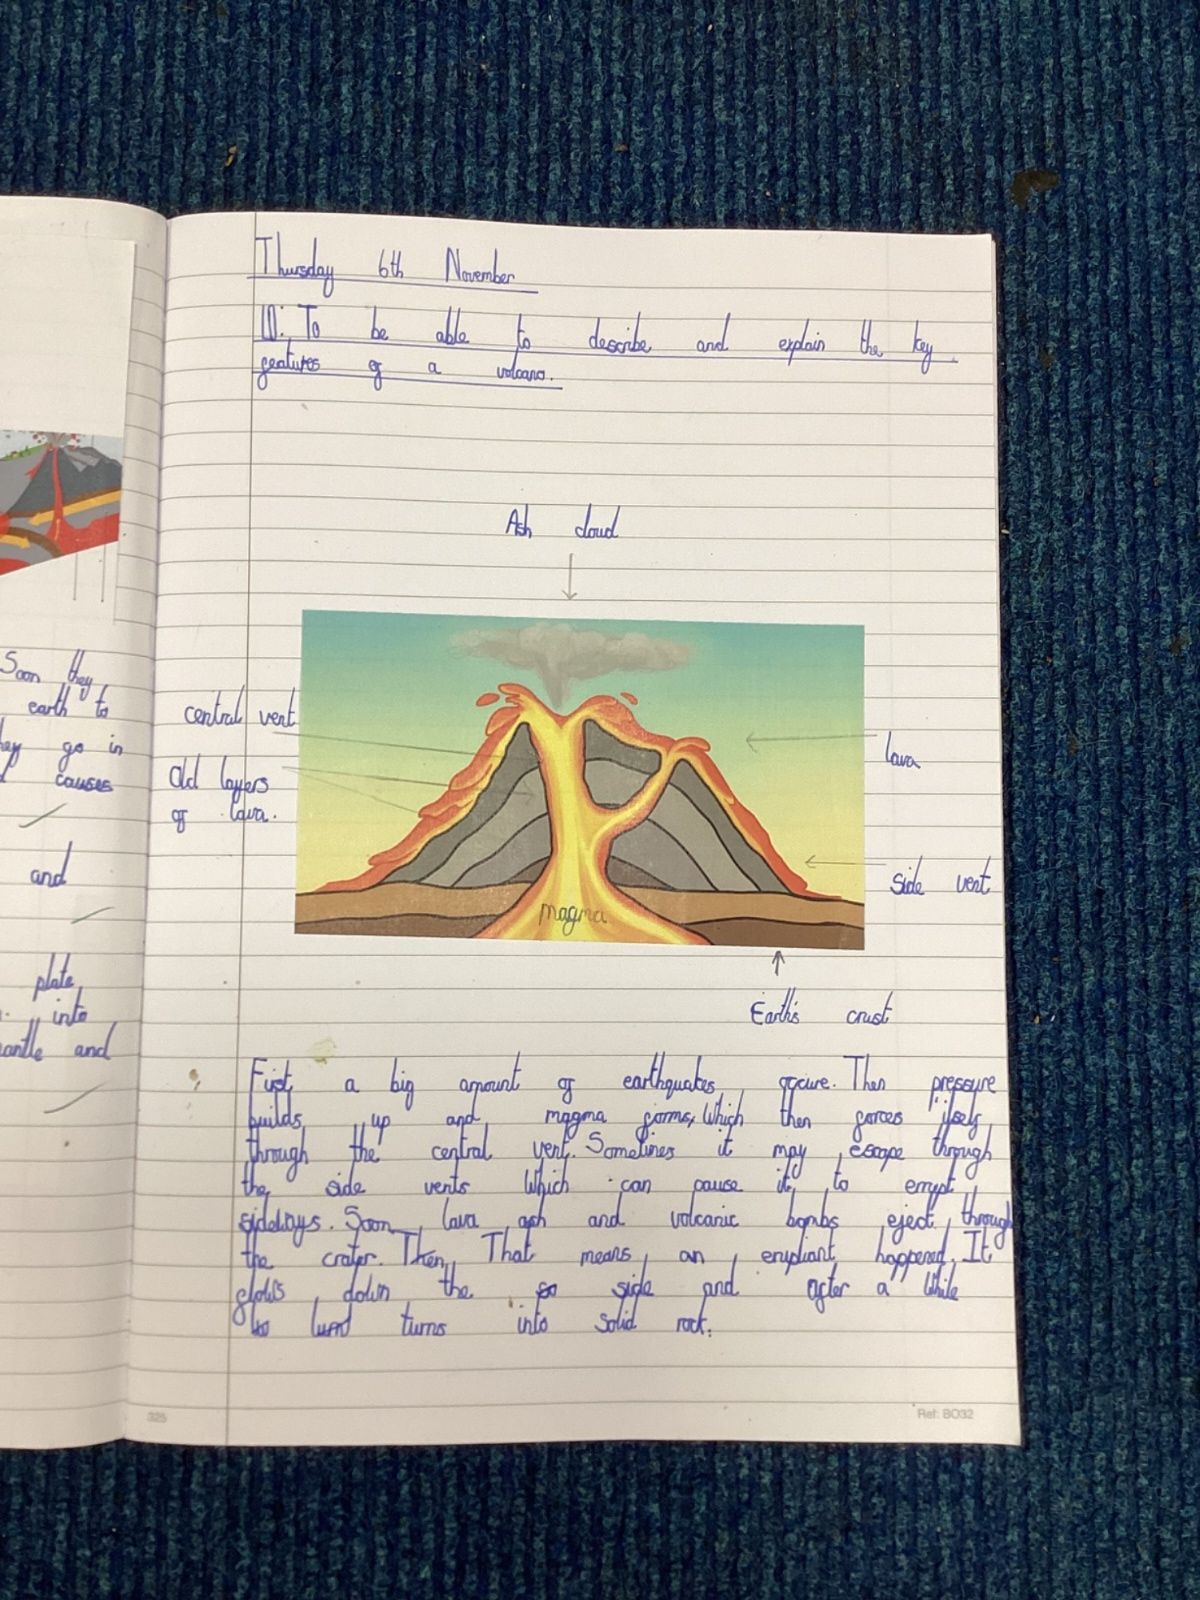 Soon they
earth to
they go in
causes
and
plate
into
mantle and
Thursday 6th November
LO: To be able to describe and explain the key
features of a volcano.
Ash cloud
central vent
Old layers
of lava.
lava
side vent
magma
Earth's crust
First a big amount of earthquakes occure. Then pressure
builds up and magma forms, Which then forces itself
through the central vent. Sometimes it may escape through
the side vents Which can cause it to errupt
sideways. Soon lava ash and volcanic bombs eject through
the crater. Then, That means an eruptiant happened. It
flows down the side and after a While
turns into solid rock.
325
Ref: BO32